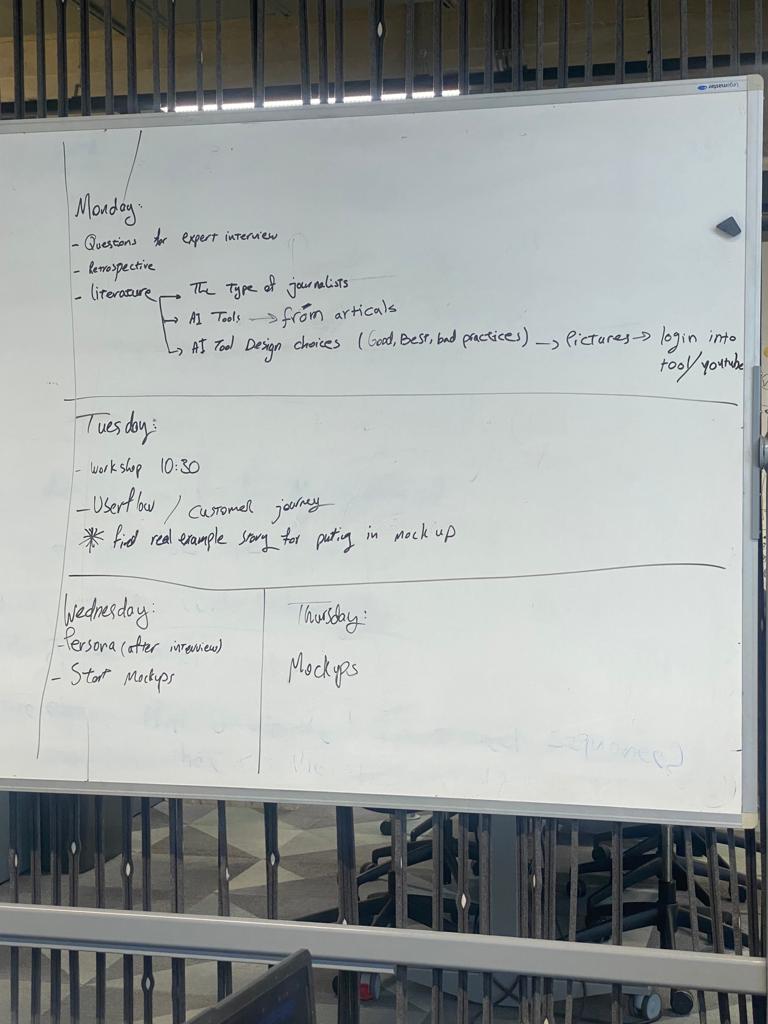 Legamaster
Monday:
- Questions for expert interview
- Retrospective
- literature → The Type of journalists
→ AI Tools → from articals
→ AI Tool Design choices (Good, Best, bad practices) → Pictures → login into
tool/youtube
Tuesday:
- workshop 10:30
- Userflow / customer journey
* find real example story for puting in mock up
Wednesday:
- Persona (after interview)
- Start Mockups
Thursday:
Mockups